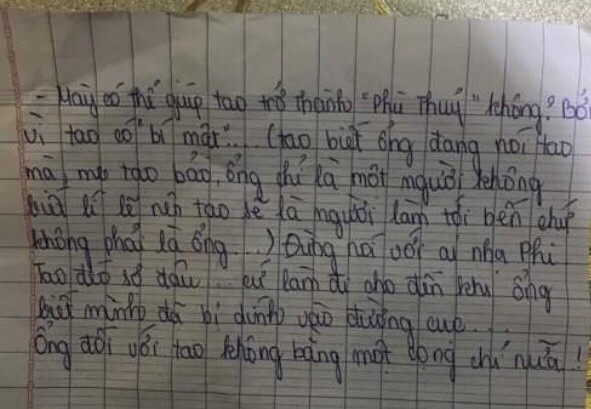 - Mày có thể giúp tao trở thành "Phù Thuỷ" không? Bởi
vì tao có "bí mật"... (tao biết ông đang nói tao
mà, mẹ tao bảo, ông chỉ là một người không
biết lí lẽ nên tao sẽ là người làm tới bến chứ
không phải là ông...) Đừng nói với ai nha Phi
Tao đéo sợ đâu... cứ làm đi cho đến khi ông
biết mình đã bị dính vào đường cùng...
Ông đối với tao không bằng một cọng chỉ nữa!